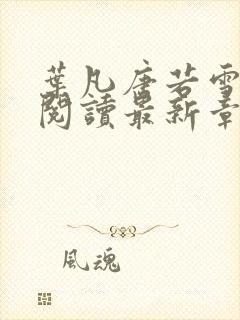 葉凡唐若雪
閱讀最新章
風魂